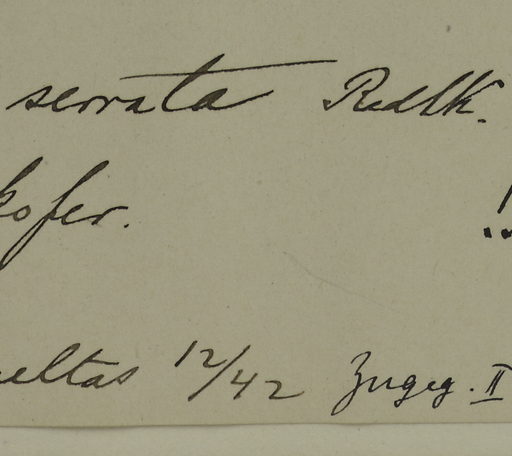 serrata Radlk.
kofer. !
eltas 12/42 Zugeg. II